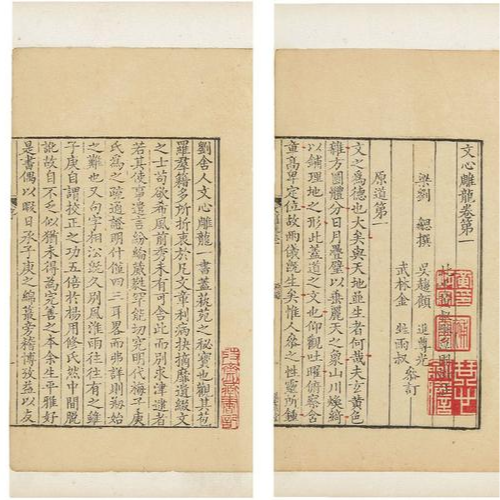 劉舍人文心雕龍一書蓋藝苑之秘寶也觀其苞
羅羣籍多所折衷於凡文章利病抉摘靡遺綴文
之士苟欲希風前秀未有可舍此而別求津逮者
若其使事遣言紛綸葳蕤罕能切究明代梅子庚
氏為之疏通證明什僅四三耳畧而弗詳則剏始
之難也又句字相沿既久別風淮雨往往有之雖
子庚自謂校正之功五倍於楊用修氏然中閒脫
訛故自不乏似猶未得為完善之本余生平雅好
是書偶以暇日承子庚之緜蕝旁稽博攷益以友
文心雕龍卷第一
梁劉勰撰
吳趨顧進尊光
武林金甡雨叔
參訂
原道第一
文之為德也大矣與天地並生者何哉夫玄黃色
雜方圓體分日月疊璧以垂麗天之象山川煥綺
以鋪理地之形此蓋道之文也仰觀吐曜俯察含
章高卑定位故兩儀既生矣惟人參之性靈所鍾